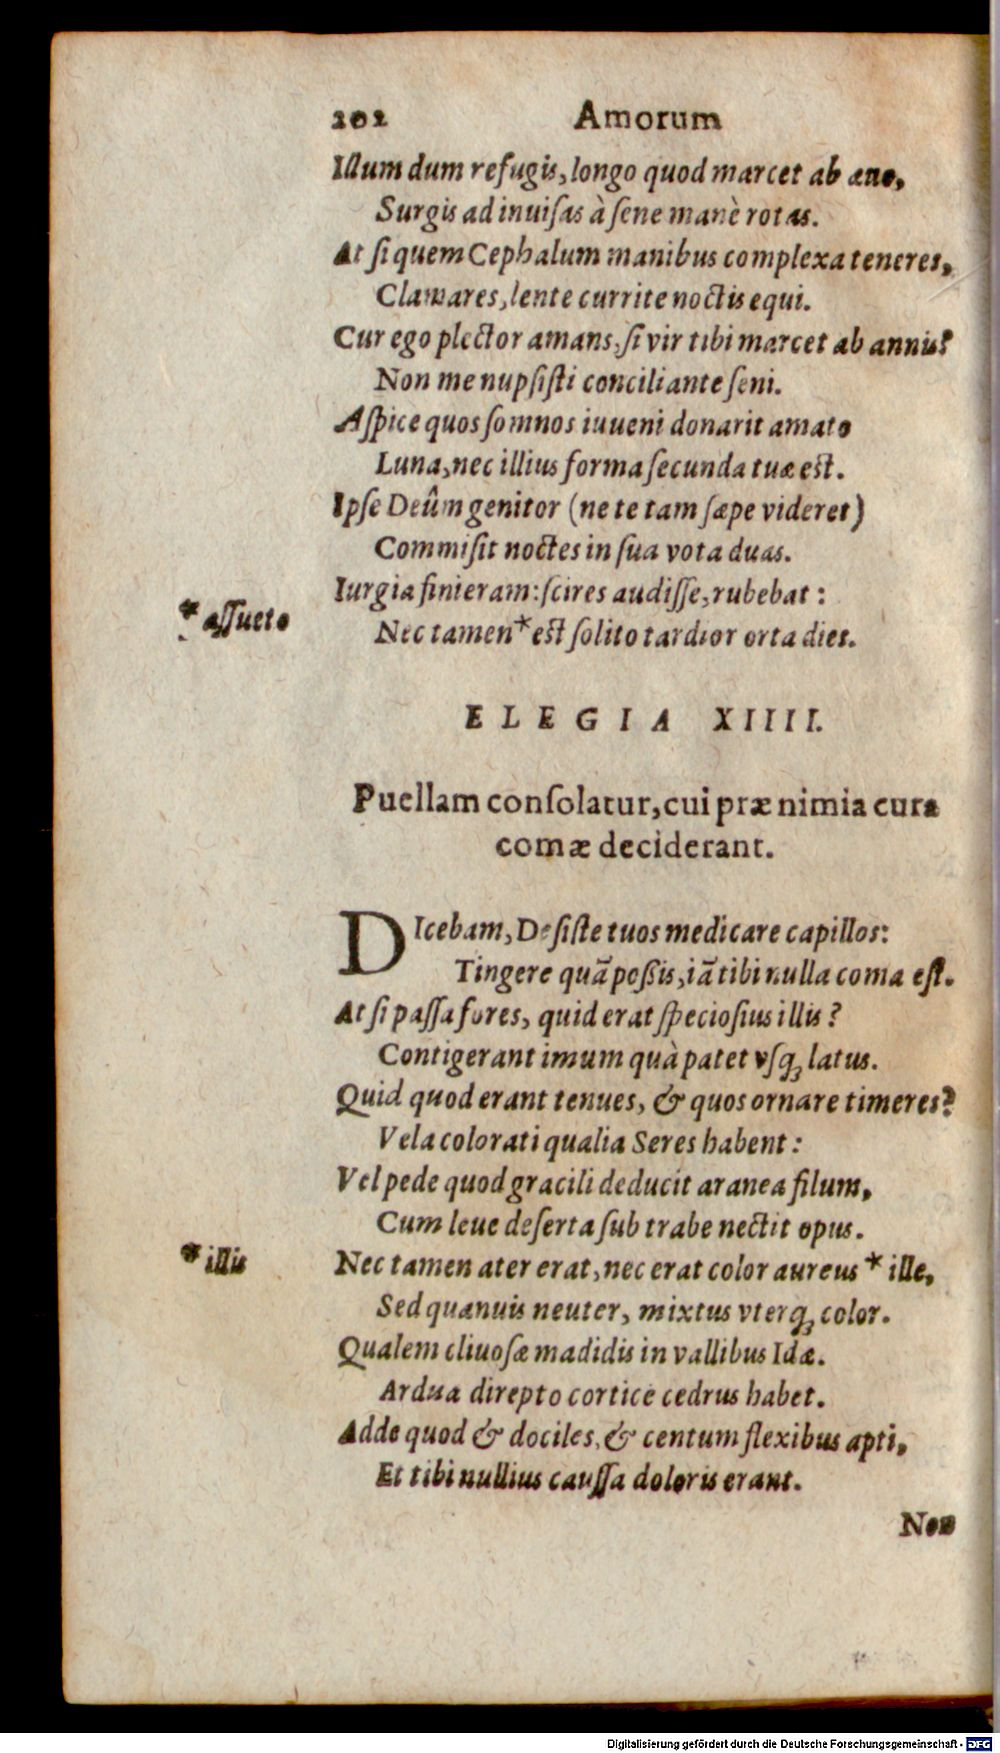 202 Amorum
Illum dum refugis, longo quod marcet ab æuo,
Surgis ad inuiſas à ſene manè rotas.
At ſi quem Cephalum manibus complexa teneres,
Clamares, lente currite noctis equi.
Cur ego plector amans, ſi vir tibi marcet ab annis?
Non me nupſiſti conciliante ſeni.
Aſpice quos ſomnos iuueni donarit amato
Luna, nec illius forma ſecunda tuæ eſt.
Ipſe Deûm genitor (ne te tam ſæpe videret)
Commiſit noctes in ſua vota duas.
Iurgia finieram: ſcires audiſſe, rubebat :
* aſſueto
Nec tamen * eſt ſolito tardior orta dies.
ELEGIA XIIII.
Puellam conſolatur, cui præ nimia cura
comæ deciderant.
DIcebam, Deſiſte tuos medicare capillos:
Tingere quã poßis, iã tibi nulla coma eſt.
At ſi paſſa fores, quid erat ſpecioſius illis ?
Contigerant imum quà patet vſq; latus.
Quid quod erant tenues, & quos ornare timeres?
Vela colorati qualia Seres habent :
Vel pede quod gracili deducit aranea filum,
Cum leue deſerta ſub trabe nectit opus.
* illis
Nec tamen ater erat, nec erat color aureus * ille,
Sed quanuis neuter, mixtus vterq; color.
Qualem cliuoſæ madidis in vallibus Idæ.
Ardua direpto cortice cedrus habet.
Adde quod & dociles, & centum flexibus apti,
Et tibi nullius cauſſa doloris erant.
Non
Digitalisierung gefördert durch die Deutsche Forschungsgemeinschaft - DFG